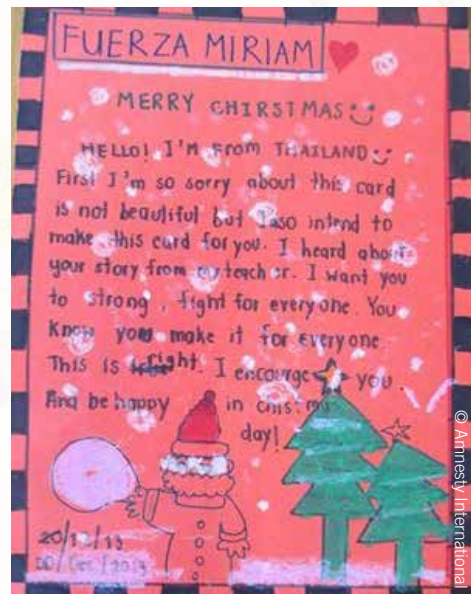 FUERZA MIRIAM
MERRY CHIRSTMAS
HELLO! I'M FROM THAILAND
First I'm so sorry about this card
is not beautiful but I also intend to
make this card for you. I heard about
your story from my teacher. I want you
to strong, fight for everyone. You
Know you make it for everyone
This is right. I encourge you.
And be happy in
day!
20/12/13
20/Dec/2013
© Amnesty International